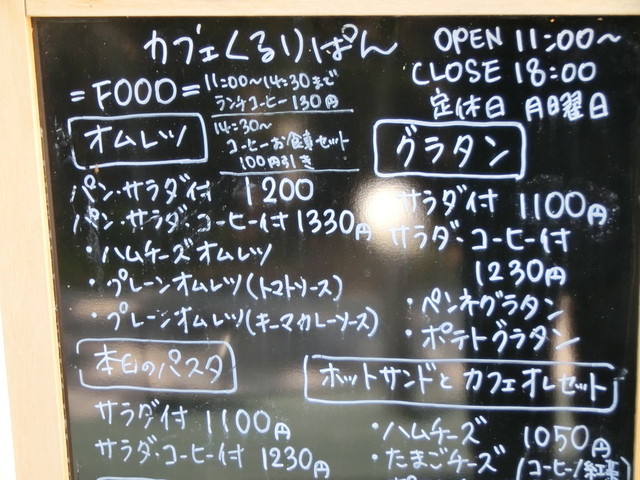 カフェくるりぱん
OPEN 11:00〜
CLOSE 18:00
定休日 月曜日
=FOOD=
11:00〜14:30まで
ランチコーヒー 130円
14:30〜
コーヒーお食事セット
100円引き
オムレツ
パン・サラダ付 1200
パン・サラダ・コーヒー付 1330円
・ハムチーズオムレツ
・プレーンオムレツ(トマトソース)
・プレーンオムレツ(キーマカレーソース)
グラタン
サラダ付 1100円
サラダ・コーヒー付
1230円
・ペンネグラタン
・ポテトグラタン
本日のパスタ
サラダ付 1100円
サラダ・コーヒー付 1230円
ホットサンドとカフェオレセット
・ハムチーズ 1050円
・たまごチーズ (コーヒー/紅茶